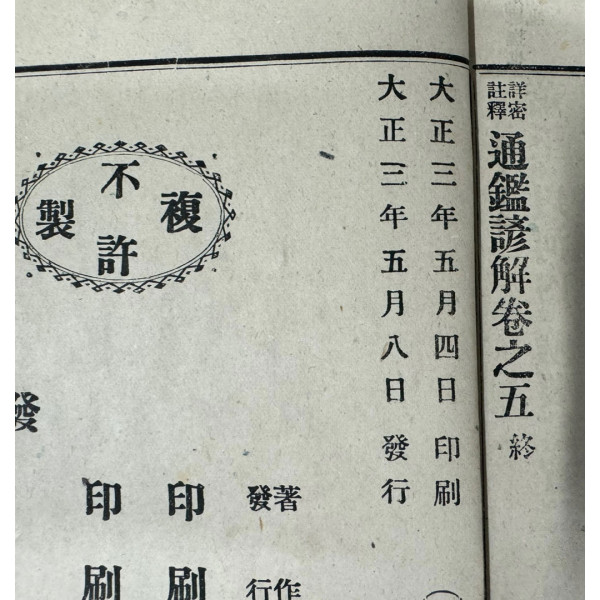 詳密
註釋
通鑑諺解卷之五 終
大正三年五月四日印刷
大正三年五月八日發行
不許複製
著作
發行
印刷
印刷
發